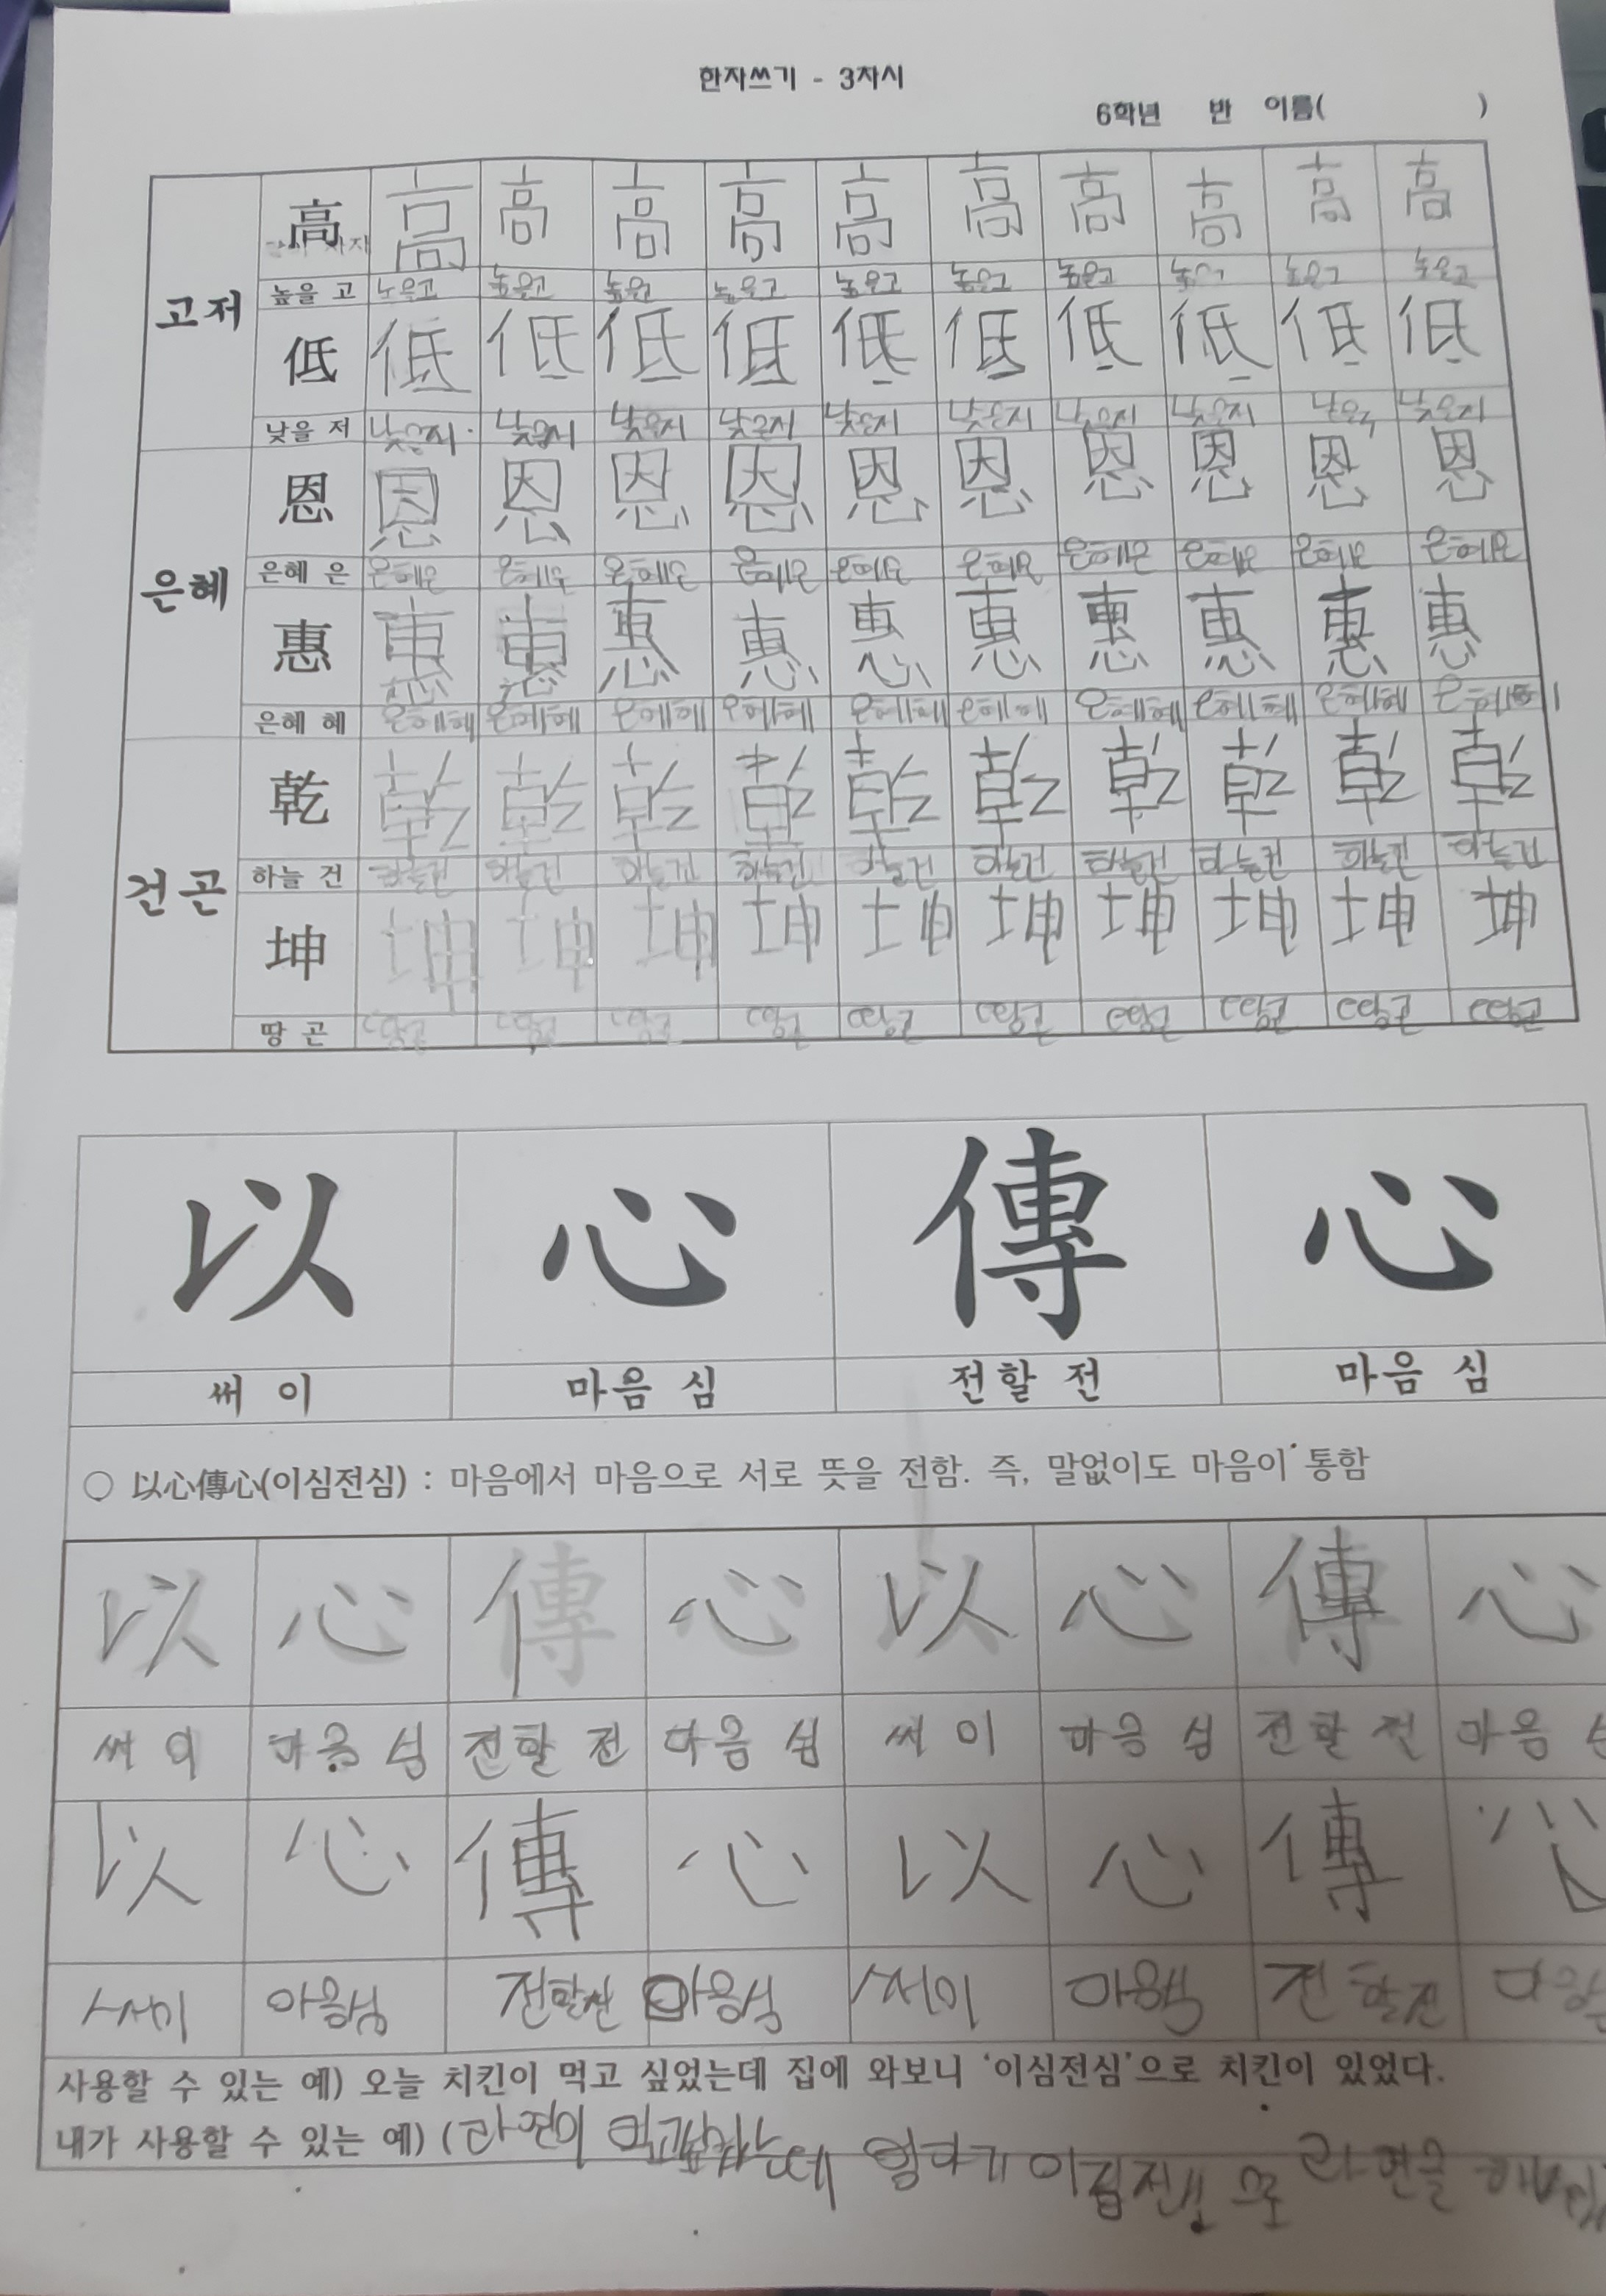 한자쓰기 - 3차시
6학년 반 이름( )
高 高 高 高 高 高 高 高 高 高 高
높을 고 노을고 높을고 높을고 높을고 높을고 높을고 높을고 높을고 높을고
고저
低 低 低 低 低 低 低 低 低 低 低
낮을 저 낮을저 낮을저 낮을저 낮을저 낮을저 낮을저 낮을저 낮을저 낮을저
恩 恩 恩 恩 恩 恩 恩 恩 恩 恩 恩
은혜 은 은혜은 은혜은 은혜은 은혜은 은혜은 은혜은 은혜은 은혜은 은혜은 은혜은
은혜
惠 惠 惠 惠 惠 惠 惠 惠 惠 惠 惠
은혜 혜 은혜혜 은혜혜 은혜혜 은혜혜 은혜혜 은혜혜 은혜혜 은혜혜 은혜혜 은혜혜
乾 乾 乾 乾 乾 乾 乾 乾 乾 乾 乾
하늘 건 하늘건 하늘건 하늘건 하늘건 하늘건 하늘건 하늘건 하늘건 하늘건 하늘건
건곤
坤 坤 坤 坤 坤 坤 坤 坤 坤 坤 坤
땅 곤 땅곤 땅곤 땅곤 땅곤 땅곤 땅곤 땅곤 땅곤 땅곤 땅곤
以 心 傳 心
써 이 마음 심 전할 전 마음 심
○ 以心傳心(이심전심) : 마음에서 마음으로 서로 뜻을 전함. 즉, 말없이도 마음이 통함
以 心 傳 心 以 心 傳 心
써 이 마음 심 전할 전 마음 심 써 이 마음 심 전할 전 마음
以 心 傳 心 以 心 傳 心
써이 마음심 전할전 마음심 써이 마음심 전할전
사용할 수 있는 예) 오늘 치킨이 먹고 싶었는데 집에 와보니 '이심전심'으로 치킨이 있었다.
내가 사용할 수 있는 예) (라면이 먹고싶었는데 엄마가 이심전심으로 라면을